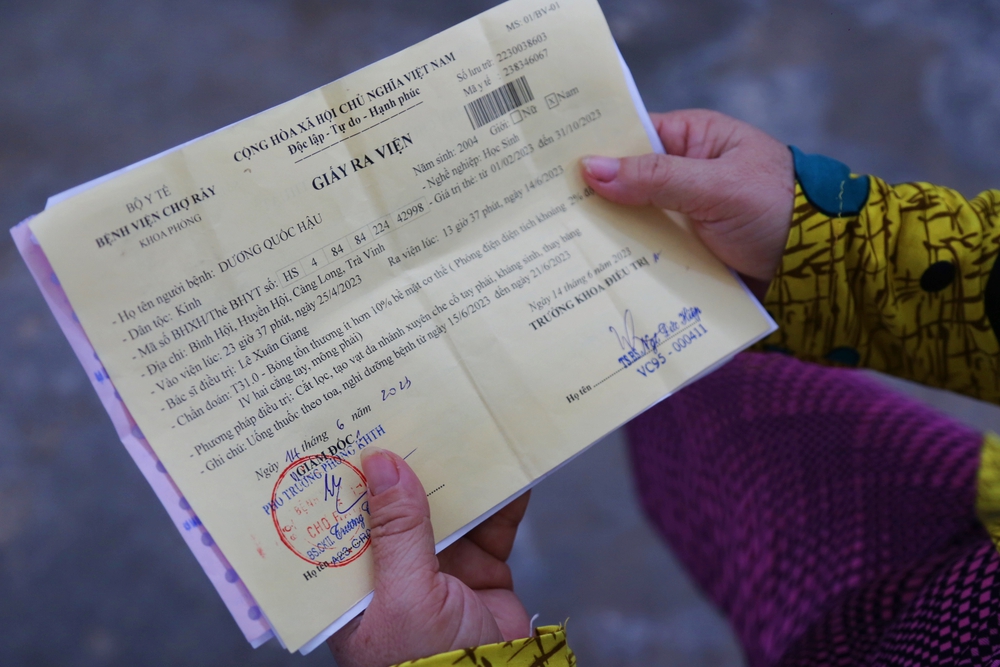 BỘ Y TẾ
BỆNH VIỆN CHỢ RẪY
KHOA PHỎNG
CỘNG HÒA XÃ HỘI CHỦ NGHĨA VIỆT NAM
Độc lập - Tự do - Hạnh phúc
MS: 01/BV-01
Số lưu trữ: 2230038603
Mã y tế 238346067
GIẤY RA VIỆN
- Họ tên người bệnh: DƯƠNG QUỐC HẬU Năm sinh: 2004 Giới: Nữ X Nam
- Dân tộc: Kinh - Nghề nghiệp: Học Sinh
- Mã số BHXH/Thẻ BHYT số: HS 4 84 84 224 42998 - Giá trị thẻ: từ 01/02/2023 đến 31/10/2023
- Địa chỉ: Bình Hội, Huyện Hội, Càng Long, Trà Vinh
- Vào viện lúc: 23 giờ 37 phút, ngày 25/4/2023 Ra viện lúc: 13 giờ 37 phút, ngày 14/6/2023
- Bác sĩ điều trị: Lê Xuân Giang
- Chẩn đoán: T31.0 - Bỏng tổn thương ít hơn 10% bề mặt cơ thể ( Phỏng điện diện tích khoảng 2%
IV hai cẳng tay, mông phải)
- Phương pháp điều trị: Cắt lọc, tạo vạt da nhánh xuyên che cổ tay phải, kháng sinh, thay băng
- Ghi chú: Uống thuốc theo toa, nghỉ dưỡng bệnh từ ngày 15/6/2023 đến ngày 21/6/2023
Ngày 14 tháng 6 năm 2023
GIÁM ĐỐC
PHÓ TRƯỞNG PHÒNG KHTH
BS.CKII
Họ tên
Ngày 14 tháng 6 năm 2023
TRƯỞNG KHOA ĐIỀU TRỊ
TS.BS Ngô Đức Hiệp
VC95 - 000411
Họ tên